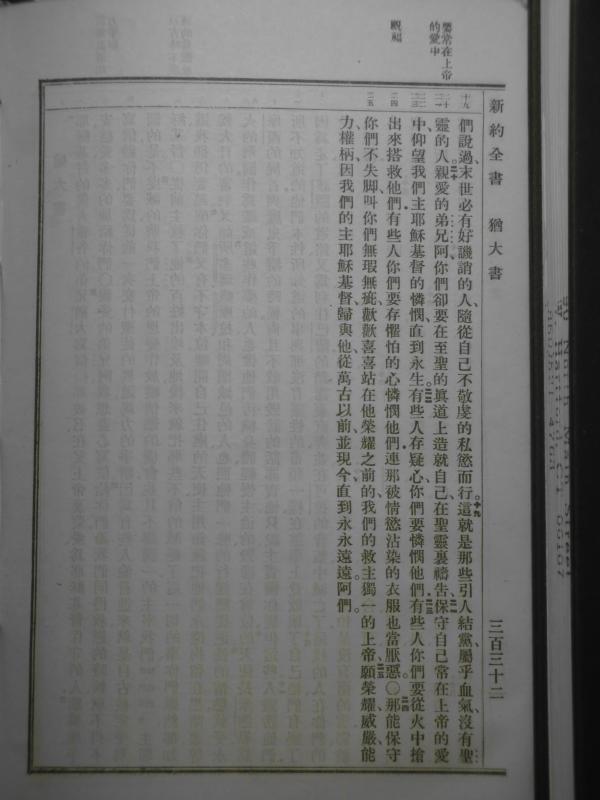 新約全書 猶大書 三百三十二
們說過、末世必有好譏誚的人、隨從自己不敬虔的私慾而行。十九這就是那些引人結黨、屬乎血氣、沒有聖
靈的人。二十親愛的弟兄阿、你們卻要在至聖的眞道上造就自己、在聖靈裏禱告、二一保守自己常在上帝的愛
中、仰望我們主耶穌基督的憐憫、直到永生。二二有些人存疑心、你們要憐憫他們。二三有些人你們要從火中搶
出來搭救他們。有些人你們要存懼怕的心憐憫他們。連那被情慾沾染的衣服也當厭惡。〇二四那能保守
你們不失脚、叫你們無瑕無疵、歡歡喜喜站在他榮耀之前的我們的救主獨一的上帝、二五願榮耀、威嚴、能
力、權柄、因我們的主耶穌基督歸與他、從萬古以前、並現今、直到永永遠遠。阿們。
要常在上帝
的愛中
祝福
十九
二十
二一
二二
二三
二四
二五
North Main Street
Hartford, CT 06107